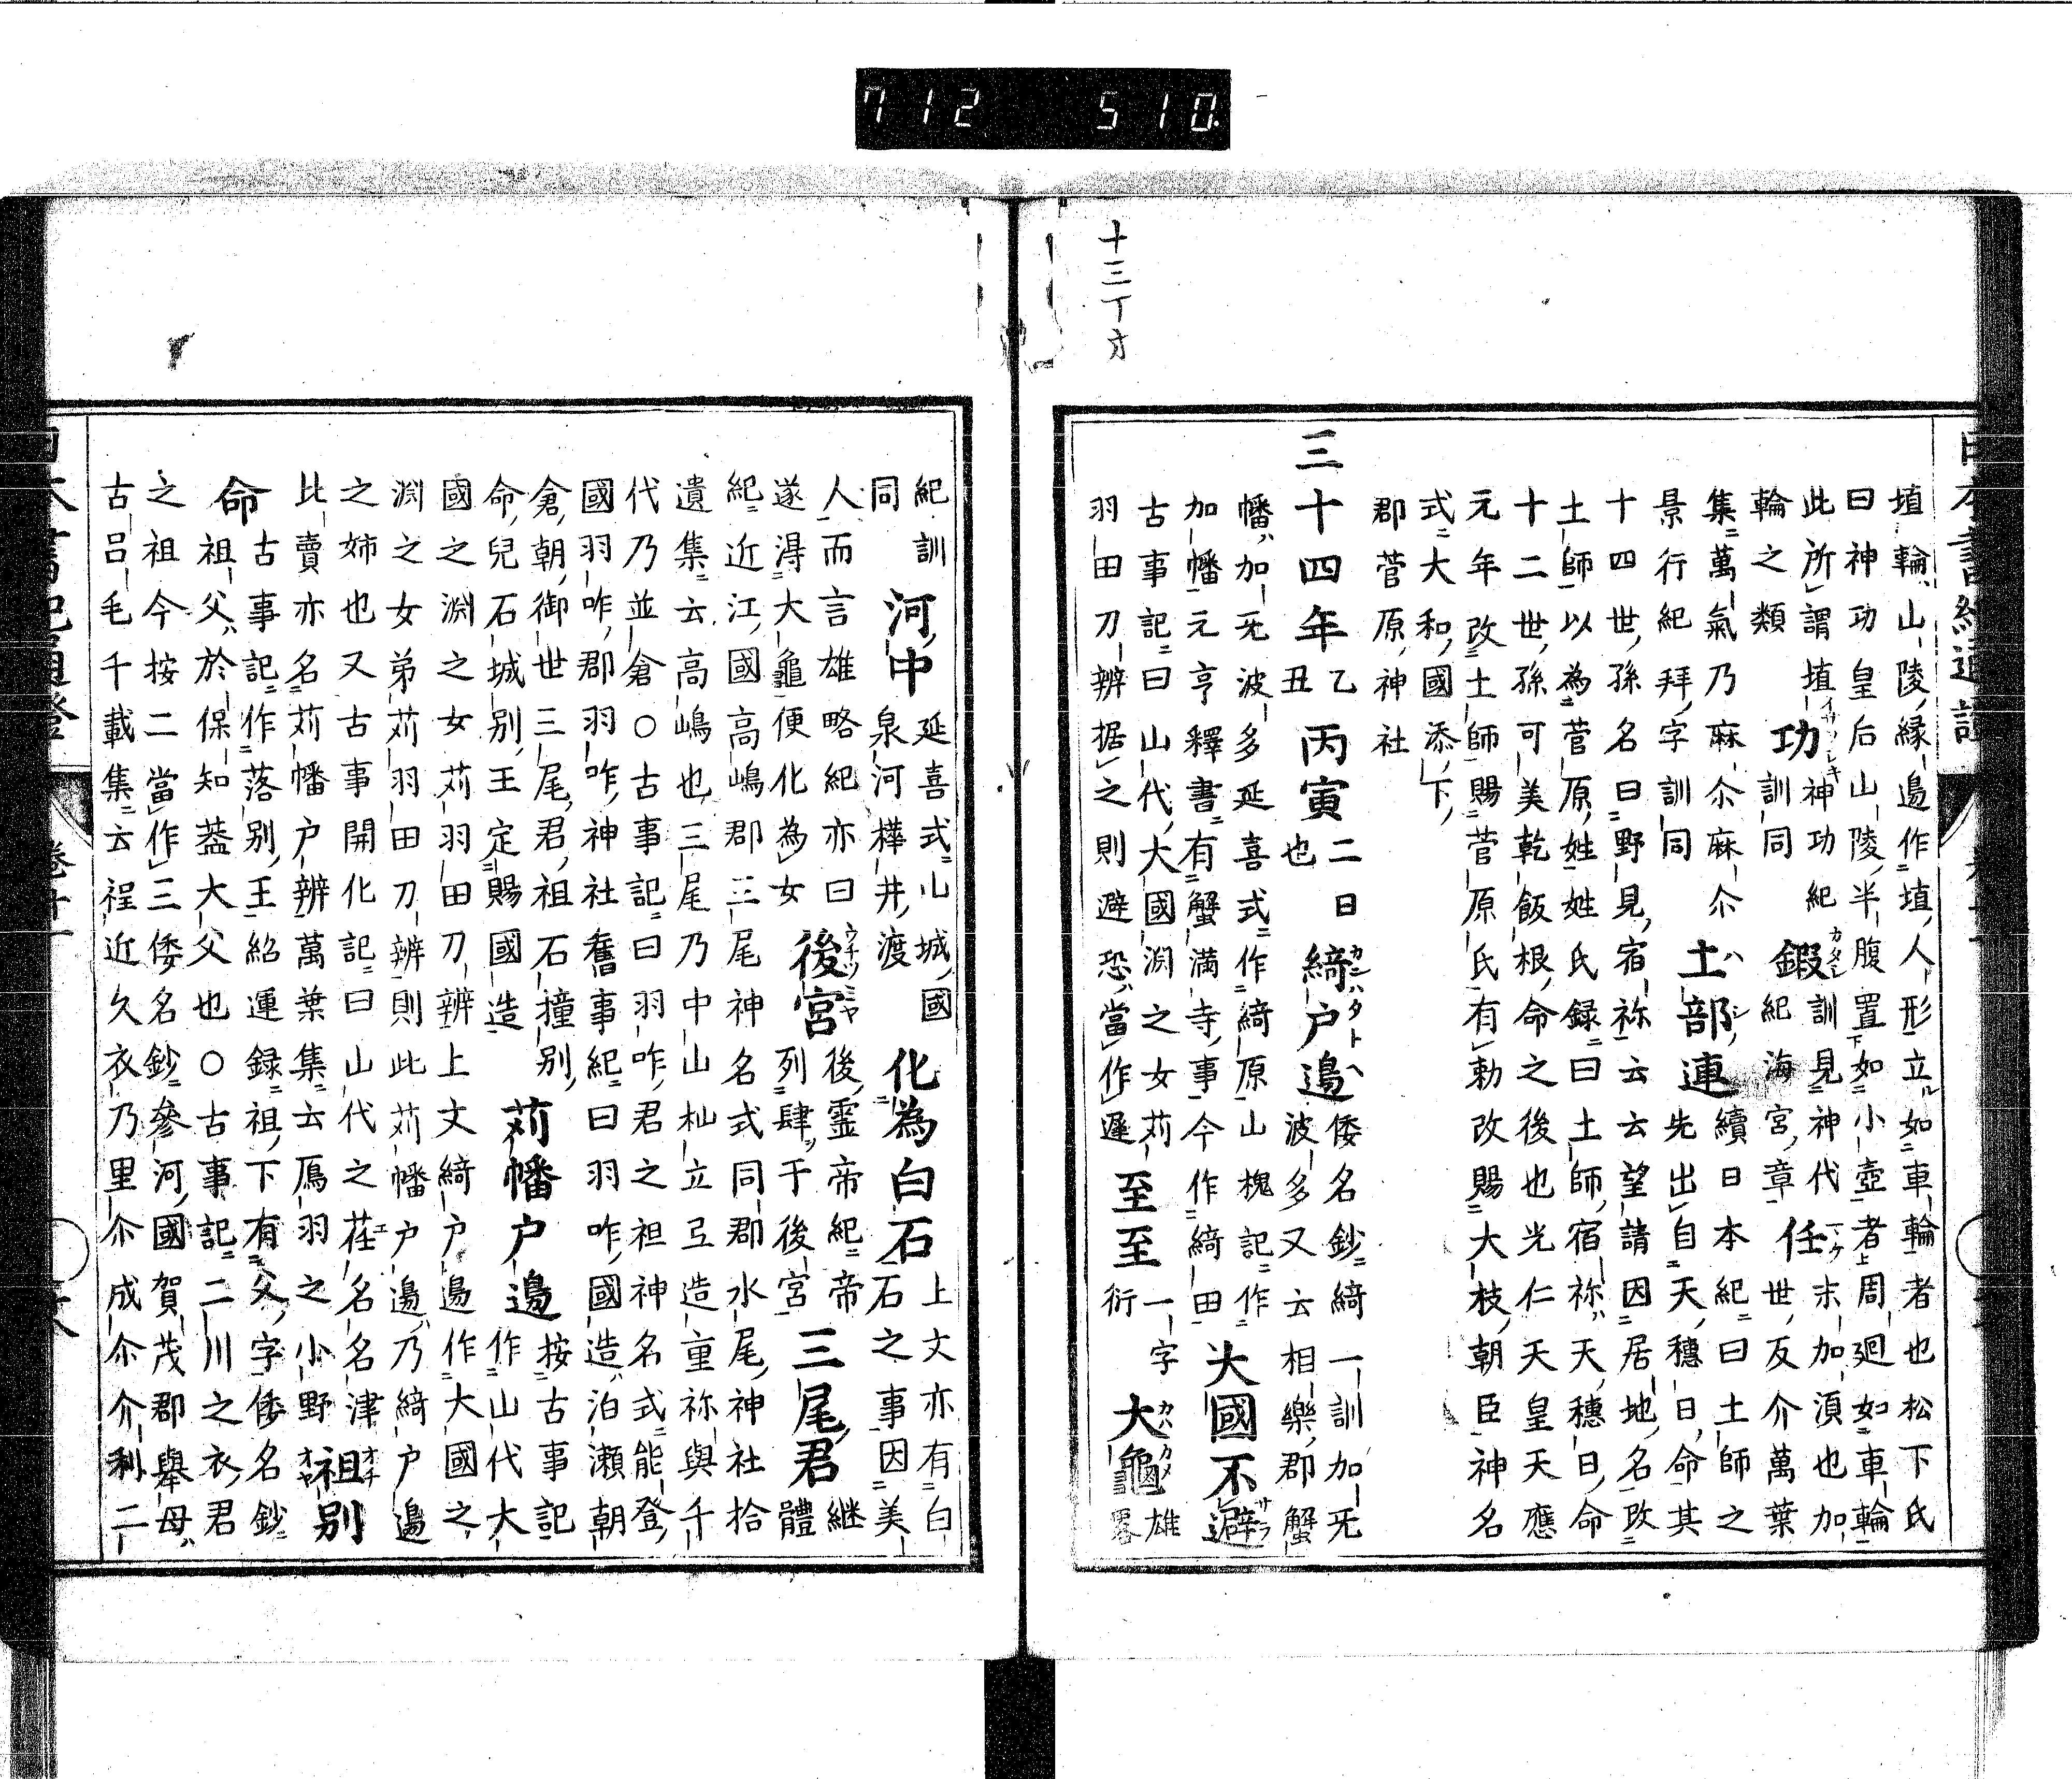 712 510
十三丁オ
埴輪山陵縁邉作埴人形立如車輪者也松下氏
曰神功皇后山陵半腹置如小壺者周廻如車輪
此所謂埴神功紀訓見神代末加湏也加
輪之類 功訓同 鍜紀海宮章 任世友介萬葉
集萬氣乃麻尒麻尒 土部連續日本紀曰土師之
景行紀拜字訓同 先出自天穗日命其
十四世孫名曰野見宿祢云云望請因居地名改
土師以為菅原姓姓氏録曰土師宿祢天穗日命
十二世孫可美乾飯根命之後也光仁天皇天應
元年改土師賜菅原氏有勅改賜大枝朝臣神名
式大和國添下
郡菅原神社
三十四年乙丑 丙寅二日也 綺戸邉倭名鈔綺一訓加无
波多又云相樂郡蟹
幡加无波多延喜式作綺原山槐記作
加幡元亨釋書有蟹満寺事今作綺田 大國不避
古事記曰山代大國渕之女苅 至至一字衍 大龜雄畧
羽田刀辨据之則避恐當作遲
紀訓同 河中延喜式山城國泉河樺井渡 化為白石上文亦有白石之事因美
人而言雄略紀亦曰 後宮後霊帝紀帝
遂淂大龜便化為女 列肆于後宮 三尾君継體
紀近江國高嶋郡三尾神名式同郡水尾神社拾
遺集云高嶋也三尾乃中山杣立弖造重祢與千
代乃並倉○古事記曰羽咋君之祖神名式能登
國羽咋郡羽咋神社舊事紀曰羽咋國造泊瀬朝
倉朝御世三尾君祖石撞別
命兒石城別王定賜國造 苅幡戸邉按古事記作山代大
國之渕之女苅羽田刀辨上文綺戸邉作大國之
渕之女弟苅羽田刀辨則此苅幡戸邉乃綺戸邉
之姉也又古事開化記曰山代之荏名名津
比賣亦名苅幡戸辨萬葉集云鴈羽之小野 祖別
命古事記作落別王紹運録祖下有父字倭名鈔
祖父於保知葢大父也○古事記二川之衣君
之祖今按二當作三倭名鈔參河國賀茂郡舉母
古呂毛千載集云程近久衣乃里尒成尒介利二